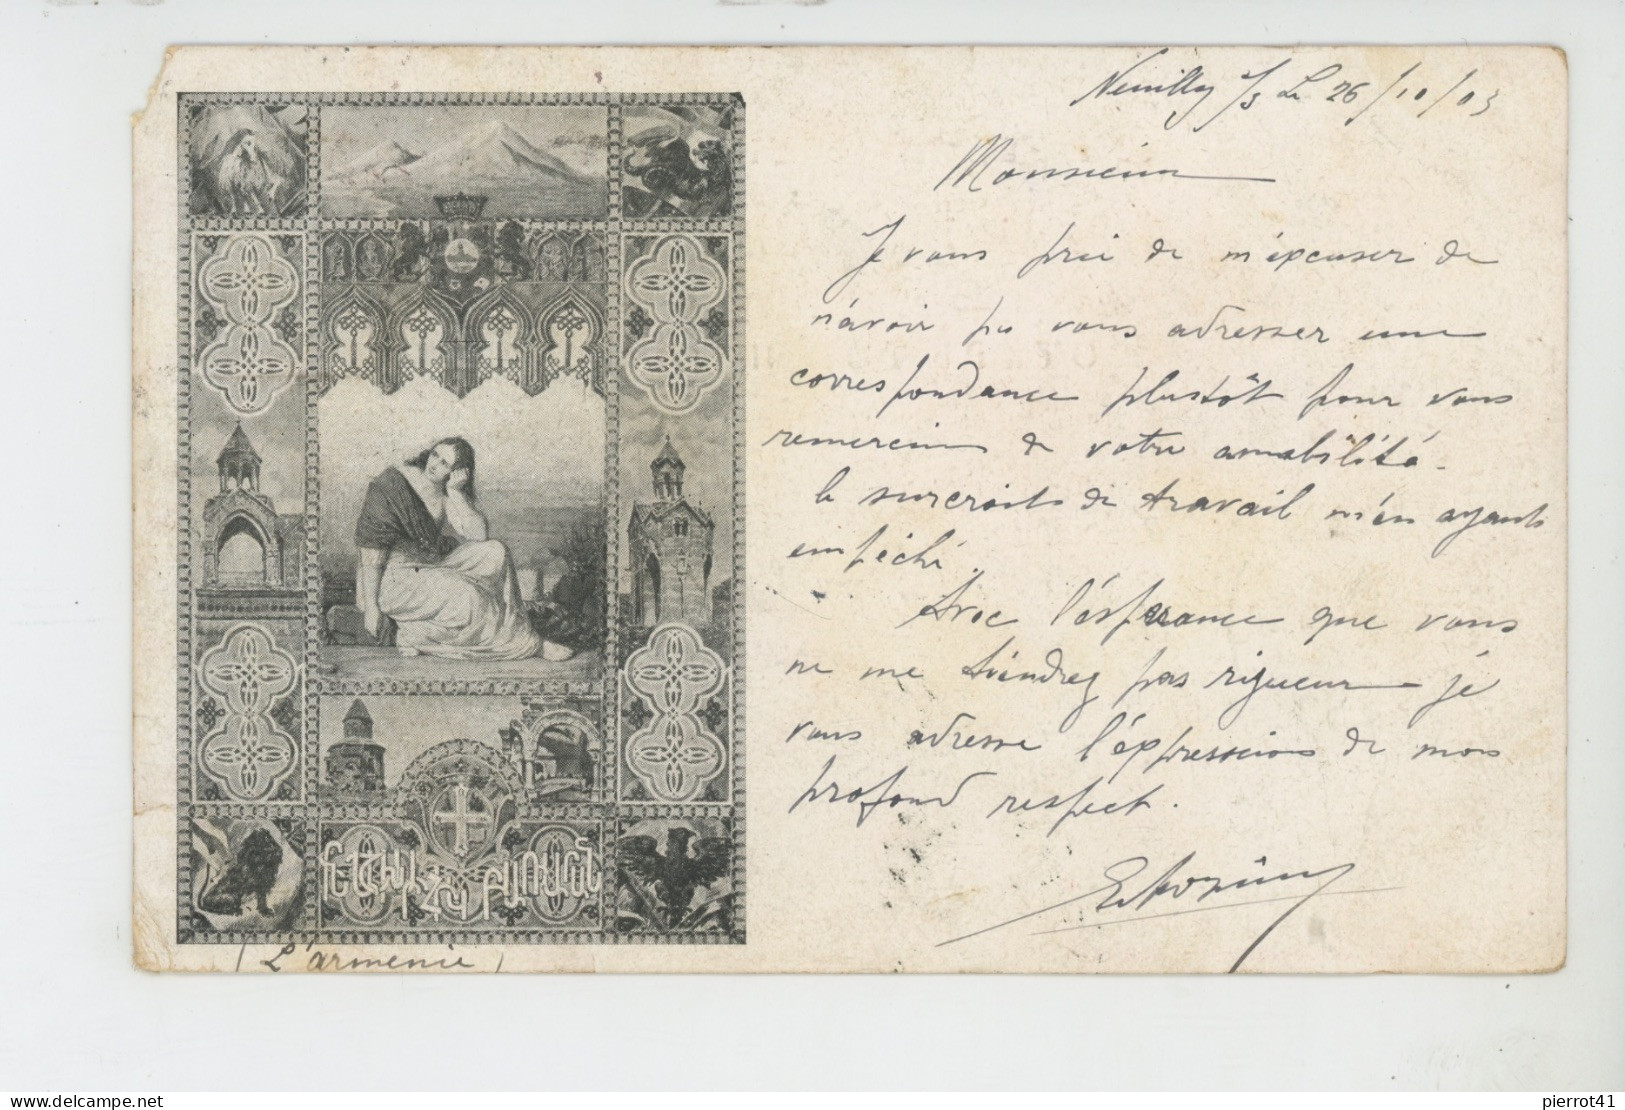 Neuilly s/s Le 26/10/03
Monsieur
Je vous prie de m'éxcuser de
n'avoir pu vous adresser une
correspondance plustôt pour vous
remercier de votre amabilité.
le surcroits de travail m'en ayants
empéché.
Avec l'ésperance que vous
ne me tiéndrez pas rigueur je
vous adresse l'éxpression de mon
profond respect.
(L'armenie)
pierrot41